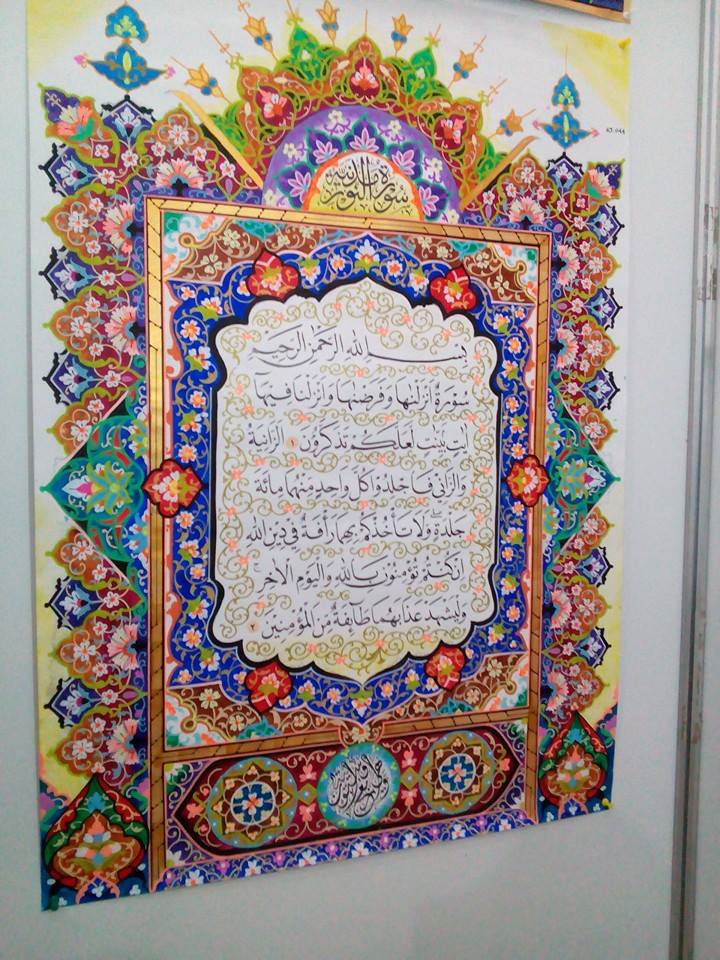 سورة النور مدنية
بِسْمِ اللهِ الرَّحْمٰنِ الرَّحِيْمِ
سُوْرَةٌ اَنْزَلْنٰهَا وَفَرَضْنٰهَا وَاَنْزَلْنَا فِيْهَآ
اٰيٰتٍۢ بَيِّنٰتٍ لَّعَلَّكُمْ تَذَكَّرُوْنَ ١ اَلزَّانِيَةُ
وَالزَّانِيْ فَاجْلِدُوْا كُلَّ وَاحِدٍ مِّنْهُمَا مِائَةَ
جَلْدَةٍ ۖ وَّلَا تَأْخُذْكُمْ بِهِمَا رَأْفَةٌ فِيْ دِيْنِ اللهِ
اِنْ كُنْتُمْ تُؤْمِنُوْنَ بِاللهِ وَالْيَوْمِ الْاٰخِرِ ۚ
وَلْيَشْهَدْ عَذَابَهُمَا طَآئِفَةٌ مِّنَ الْمُؤْمِنِيْنَ ٢